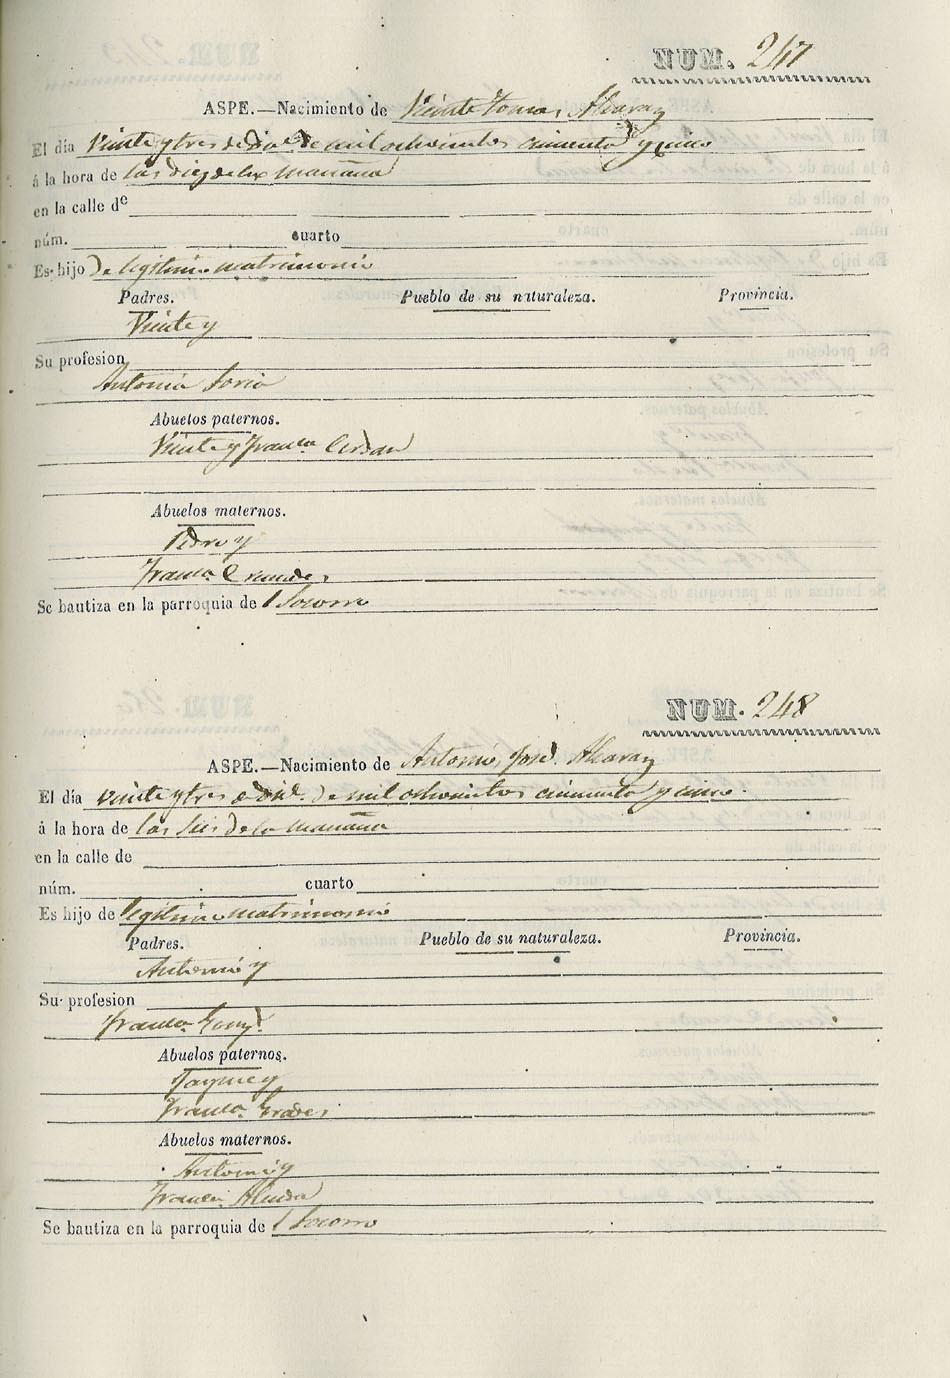 NUM. 247
ASPE.—Nacimiento de Vicente Tomas Alcaraz
El día veinte y tres de Dic.e de mil ochocientos cincuenta y cinco
á la hora de las diez de la mañana
en la calle de
núm. cuarto
Es hijo de legitimo matrimonio
Padres. Pueblo de su naturaleza. Provincia.
Vicente y
Su profesion
Antonia Soria
Abuelos paternos.
Vicente y Fran.ca Cerdan
Abuelos maternos.
Pedro y
Fran.ca
Se bautiza en la parroquia de l Socorro
NUM. 248
ASPE.—Nacimiento de Antonio José Alcaraz
El día veinte y tres de Dic.e de mil ochocientos cincuenta y cinco
á la hora de las seis de la mañana
en la calle de
núm. cuarto
Es hijo de legitimo matrimonio
Padres. Pueblo de su naturaleza. Provincia.
Antonio y
Su profesion
Fran.ca
Abuelos paternos.
Jayme y
Fran.ca
Abuelos maternos.
Antonio y
Fran.ca
Se bautiza en la parroquia de l Socorro